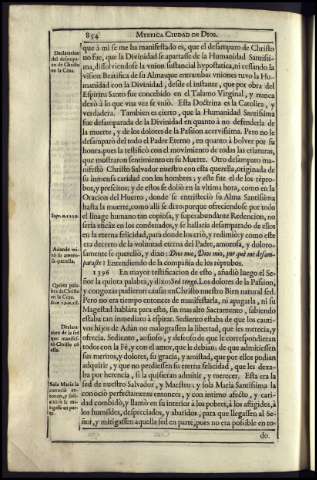 854 MYSTICA CIUDAD DE DIOS.
que à mi se me ha manifestado es, que el desamparo de Christo
no fue, que la Divinidad se apartasse de la Humanidad Santissi-
ma, dissolviendose la union substancial hypostatica, ni cessando la
vision Beatifica de su Alma; que entrambas uniones tuvo la Hu-
manidad con la Divinidad, desde el instante, que por obra del
Espiritu Santo fue concebido en el Talamo Virginal, y nunca
dexò à lo que una vez se uniò. Esta Doctrina es la Catolica, y
verdadera. Tambien es cierto, que la Humanidad Santissima
fue desamparada de la Divinidad en quanto à no defenderla de
la muerte, y de los dolores de la Passion acervissima. Pero no le
desamparò del todo el Padre Eterno, en quanto à bolver por su
honra, pues la testificò con el movimiento de todas las criaturas,
que mostraron sentimiento en su Muerte. Otro desamparo ma-
nifestò Christo Salvador nuestro con esta querella, originada de
su inmensa caridad con los hombres, y este fue el de los repro-
bos, y prescitos; y de estos se doliò en la ultima hora, como en la
Oracion del Huerto, donde se entristeciò su Alma Santissima
hasta la muerte, como allì se dixo; porque ofreciendose por todo
el linage humano tan copiosa, y superabundante Redencion, no
seria eficàz en los condenados, y se hallaria desamparado de ellos
en la eterna felicidad, para donde los criò, y redimiò; y como este
era decreto de la voluntad eterna del Padre, amorosa, y doloro-
samente se querellò, y dixo: Dios mio, Dios mio, por què me desam-
paraste? Entendiendo de la compañia de los reprobos.
1396 En mayor testificacion de esto, añadiò luego el Se-
ñor la quinta palabra, y dixo: Sed tengo. Los dolores de la Passion,
y congojas pudieron causar en Christo nuestro Bien natural sed.
Pero no era tiempo entonces de manifestarla, ni apagarla, ni su
Magestad hablàra para esto, sin mas alto Sacramento, sabiendo
estaba tan inmediato à espirar. Sediento estaba de que los cauti-
vos hijos de Adàn no malograssen la libertad, que les merecia, y
ofrecia. Sediento, ansioso, y deseoso de que le correspondieran
todos con la Fè, y con el amor, que le debian: de que admitiessen
sus meritos, y dolores, su gracia, y amistad, que por ellos podian
adquirir, y que no perdiessen su eterna felicidad, que les dexa-
ba por herencia, si la quisieran admitir, y merecer. Esta era la
sed de nuestro Salvador, y Maestro; y sola Maria Santissima la
conociò perfectamente entonces, y con intimo afecto, y cari-
dad combidò, y llamò en su interior à los pobres, à los afligidos, à
los humildes, despreciados, y abatidos, para que llegassen al Se-
ñor, y mitigassen aquella sed en parte, pues no era possible en to-
do.
Declaracion
del desampa-
ro de Christo
en la Cruz.
Sup. n. 1210.
Quinta pala-
bra de Christo
en la Cruz.
Ioan. 19. v. 28.
Declara-
cion de la sed
que manifes-
tò Christo en
ella.
Sola Maria la
conociò en-
tonces, y soli-
citò se le mi-
tigasse en par-
te.